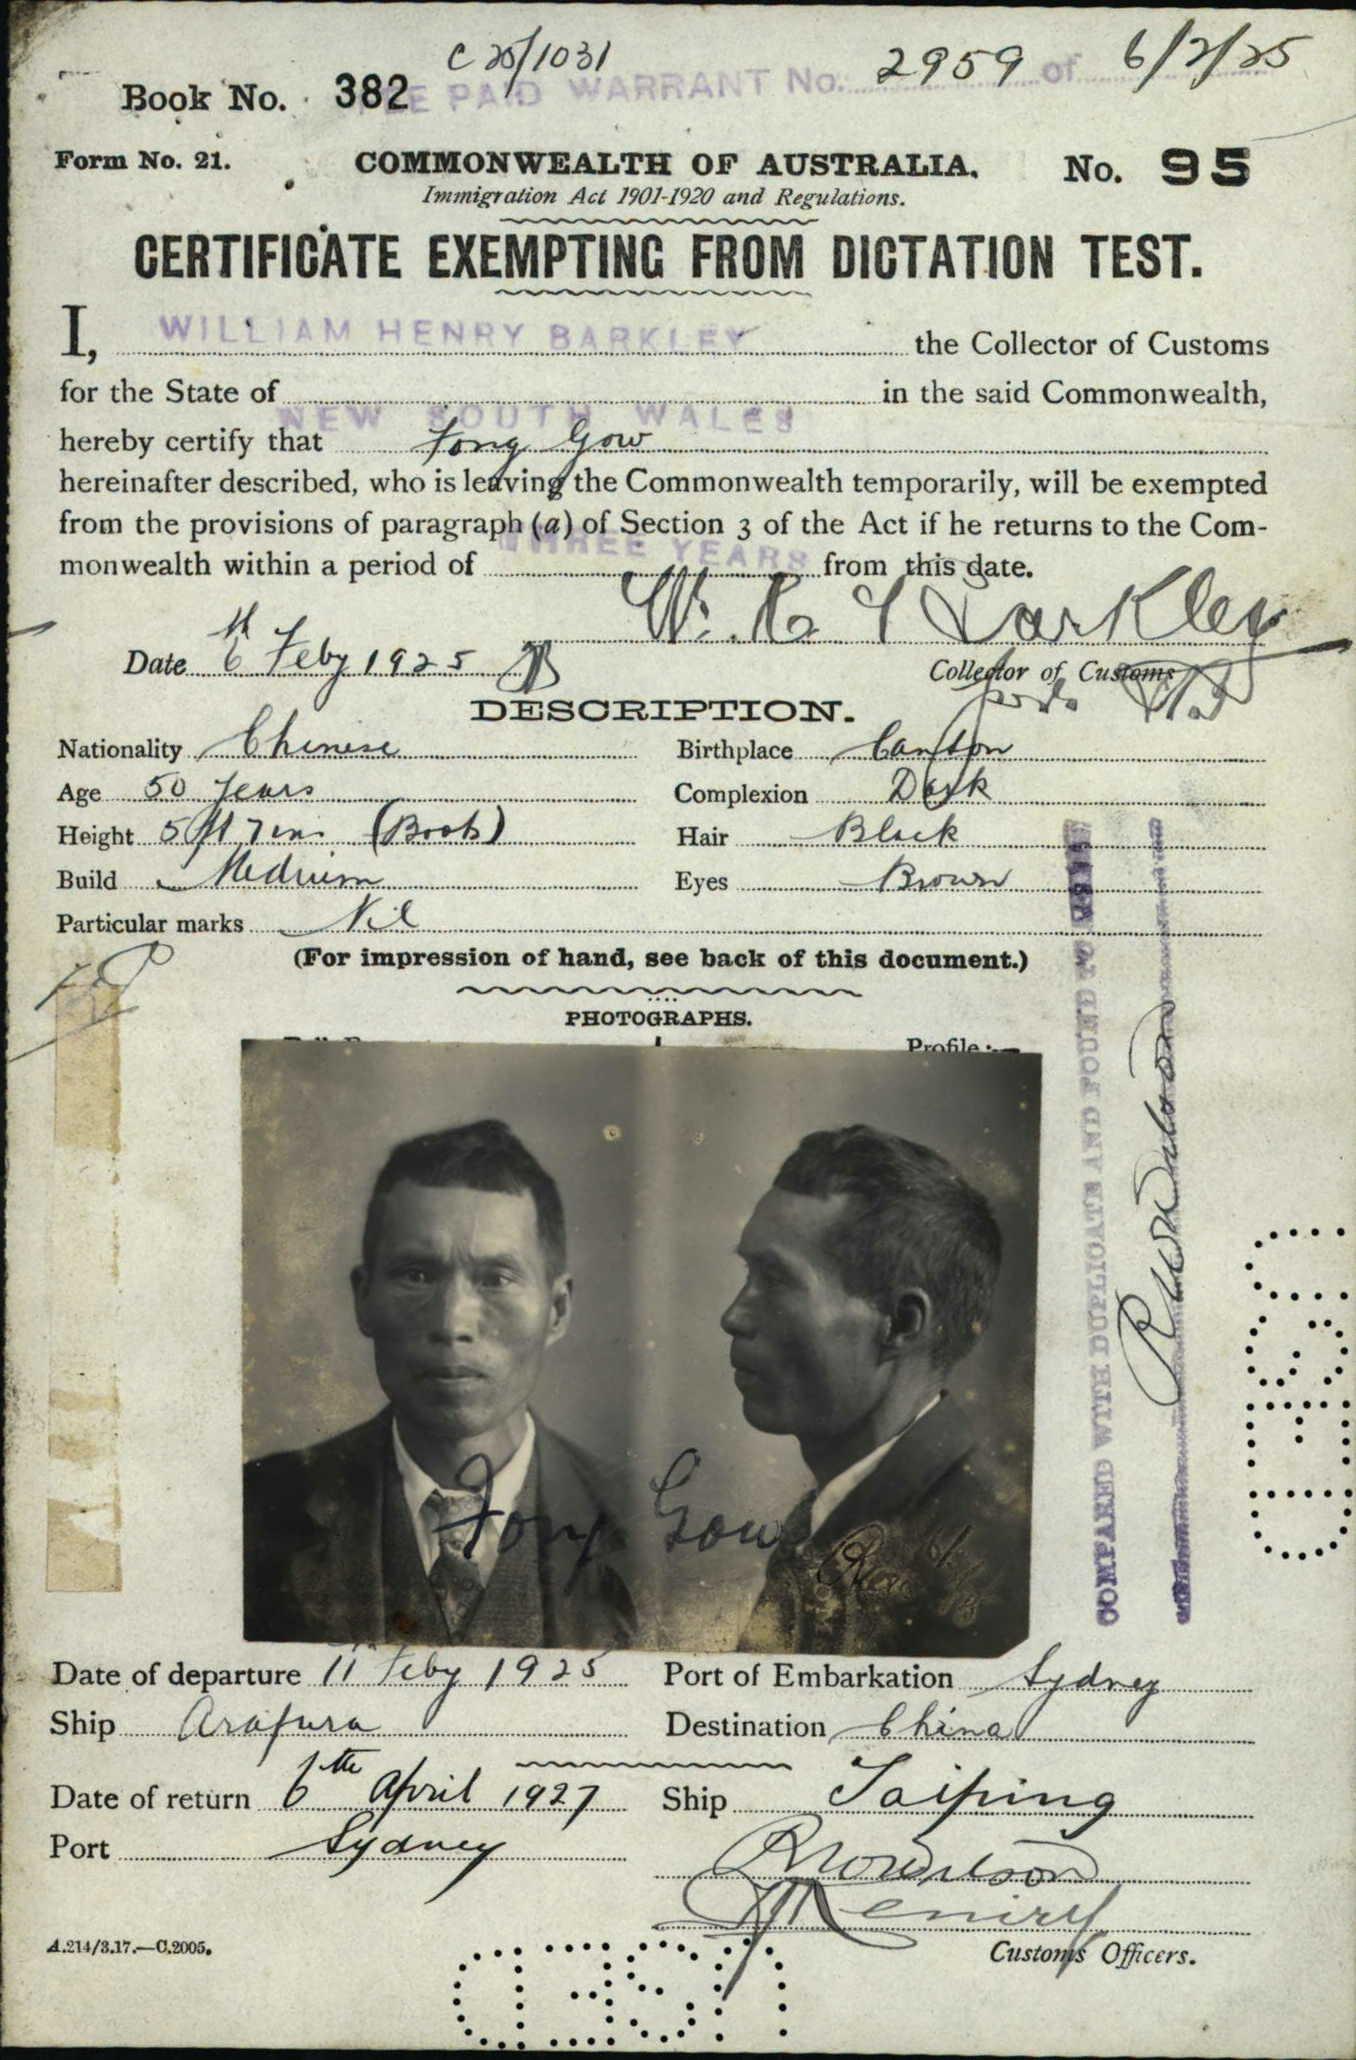 C 25/1031
FEE PAID WARRANT No. 2959 of 6/2/25
Book No. 382
Form No. 21. COMMONWEALTH OF AUSTRALIA. No. 95
Immigration Act 1901-1920 and Regulations.
CERTIFICATE EXEMPTING FROM DICTATION TEST.
I, WILLIAM HENRY BARKLEY the Collector of Customs
for the State of NEW SOUTH WALES in the said Commonwealth,
hereby certify that Fong Gow
hereinafter described, who is leaving the Commonwealth temporarily, will be exempted
from the provisions of paragraph (a) of Section 3 of the Act if he returns to the Com-
monwealth within a period of THREE YEARS from this date.
W. H. Barkley
Date 6th Feby 1925 Collector of Customs
DESCRIPTION.
Nationality Chinese Birthplace Canton
Age 50 Years Complexion Dark
Height 5 ft 7 ins (Boots) Hair Black
Build Medium Eyes Brown
Particular marks Nil
(For impression of hand, see back of this document.)
PHOTOGRAPHS.
Profile:—
Fong Gow
COMPARED WITH DUPLICATE AND FOUND TO
Date of departure 11th Feby 1925 Port of Embarkation Sydney
Ship Arafura Destination China
Date of return 6th April 1927 Ship Taiping
Port Sydney
A.214/3.17.—C.2005. Customs Officers.
USED
USED